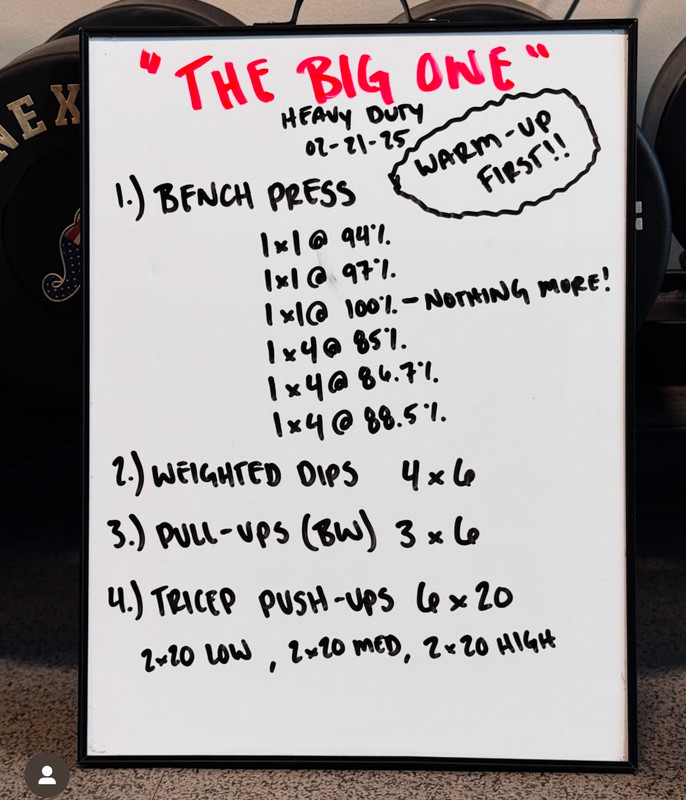 "THE BIG ONE"
HEAVY DUTY
02-21-25
WARM-UP
FIRST!!
1.) BENCH PRESS
1x1@ 94%.
1x1@ 97%.
1x1@ 100%. - NOTHING MORE!
1x4@ 85%.
1x4@ 86.7%.
1x4@ 88.5%.
2.) WEIGHTED DIPS 4x6
3.) PULL-UPS (BW) 3x6
4.) TRICEP PUSH-UPS 6x20
2x20 LOW, 2x20 MED, 2x20 HIGH
NEX